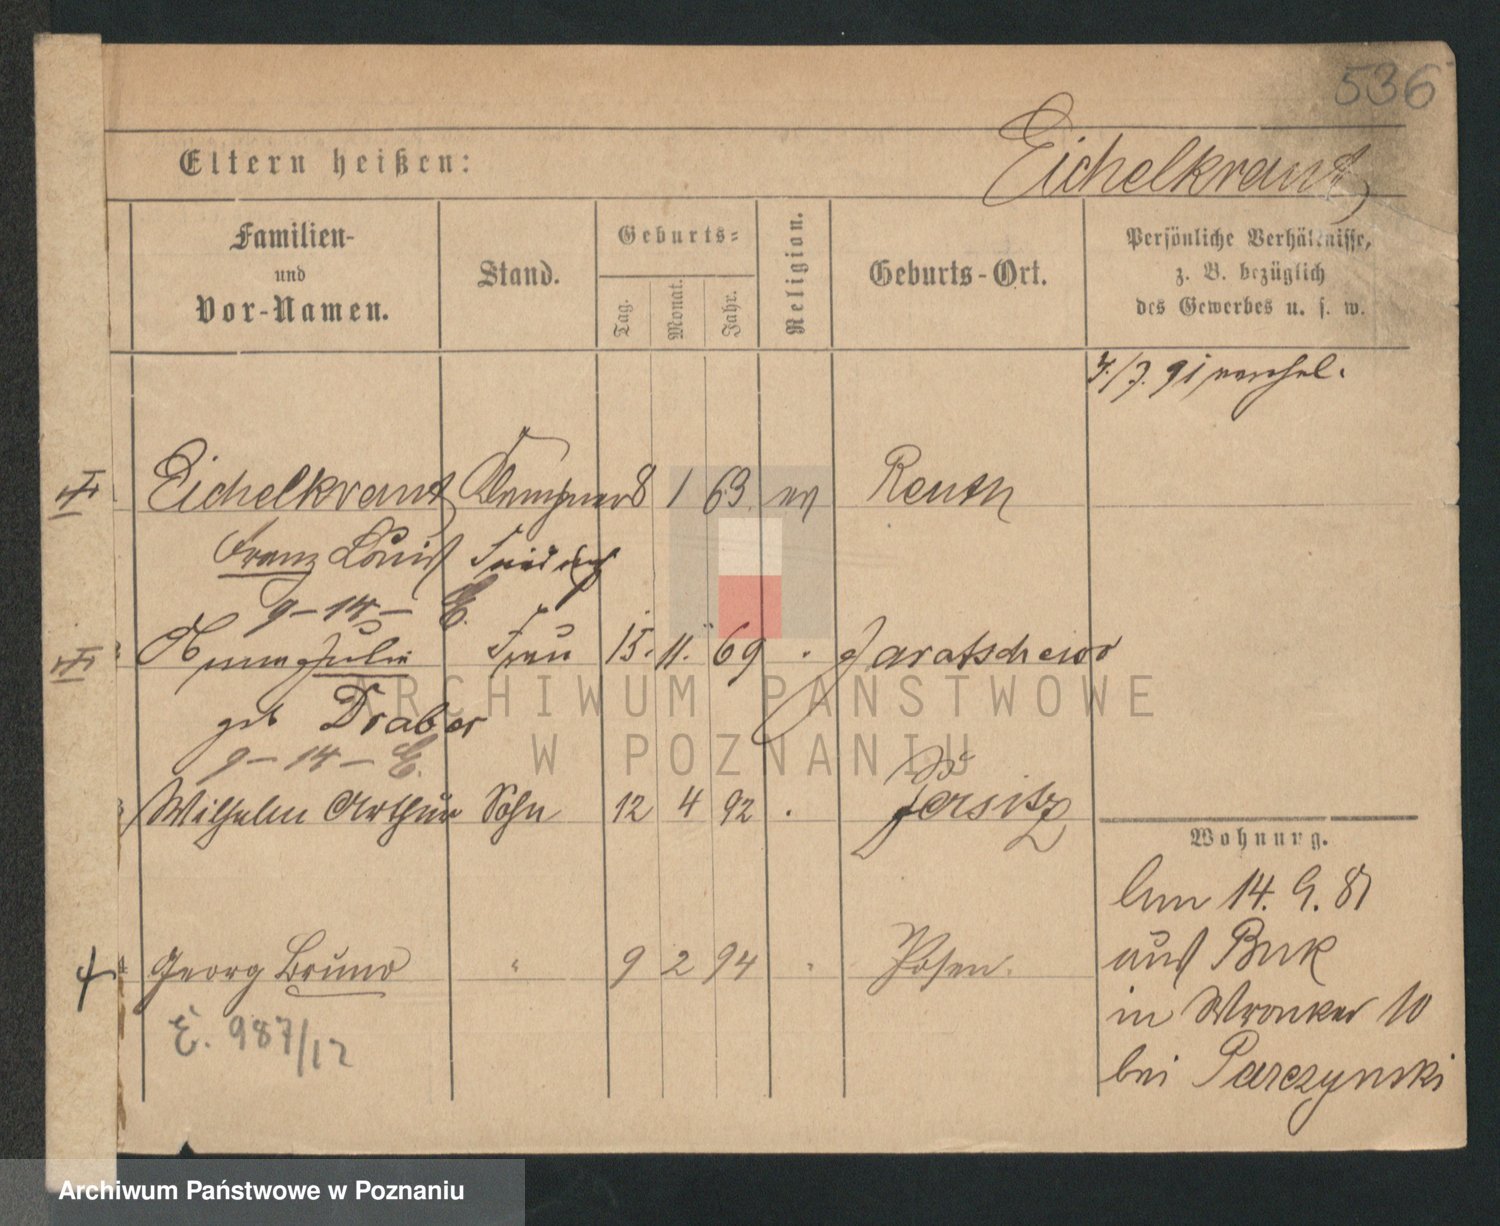 536
Eltern heißen:
Eichelkraut
Familien-
und
Vor-Namen.
Stand.
Geburts-
Tag.
Monat.
Jahr.
Religion.
Geburts-Ort.
Persönliche Verhältnisse,
z. B. bezüglich
des Gewerbes u. s. w.
91
Eichelkraut Klempner 8 1 63 ev Reuth
Franz Louis
9-14- E.
Anna Julie Frau 15. 11. 69 . Jaratschewo
geb Draber
9-14- E.
Wilhelm Arthur Sohn 12 4 92 . Jersitz
Georg Bruno " 9 2 94 " Posen.
E. 987/12
Wohnung.
14. 9. 87
aus Buk
in Wronker 10
bei Parczynski
ARCHIWUM PAŃSTWOWE
W POZNANIU
Archiwum Państwowe w Poznaniu